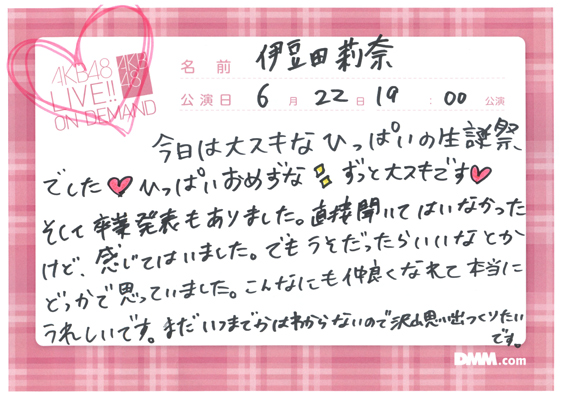 AKB48
LIVE!!
ON DEMAND
AKB
48
名前 伊豆田莉奈
公演日 6月22日 19:00 公演
今日は大スキなひっぱいの生誕祭
でした♥ひっぱいおめずな ずっと大スキです♥
そして卒業発表もありました。直接聞いてはいなかった
けど、感じてはいました。でもうそだったらいいなとか
どっかで思っていました。こんなにも仲良くなれて本当に
うれしいです。まだいつまでかはわからないので沢山思い出つくりたい
です。
DMM.com